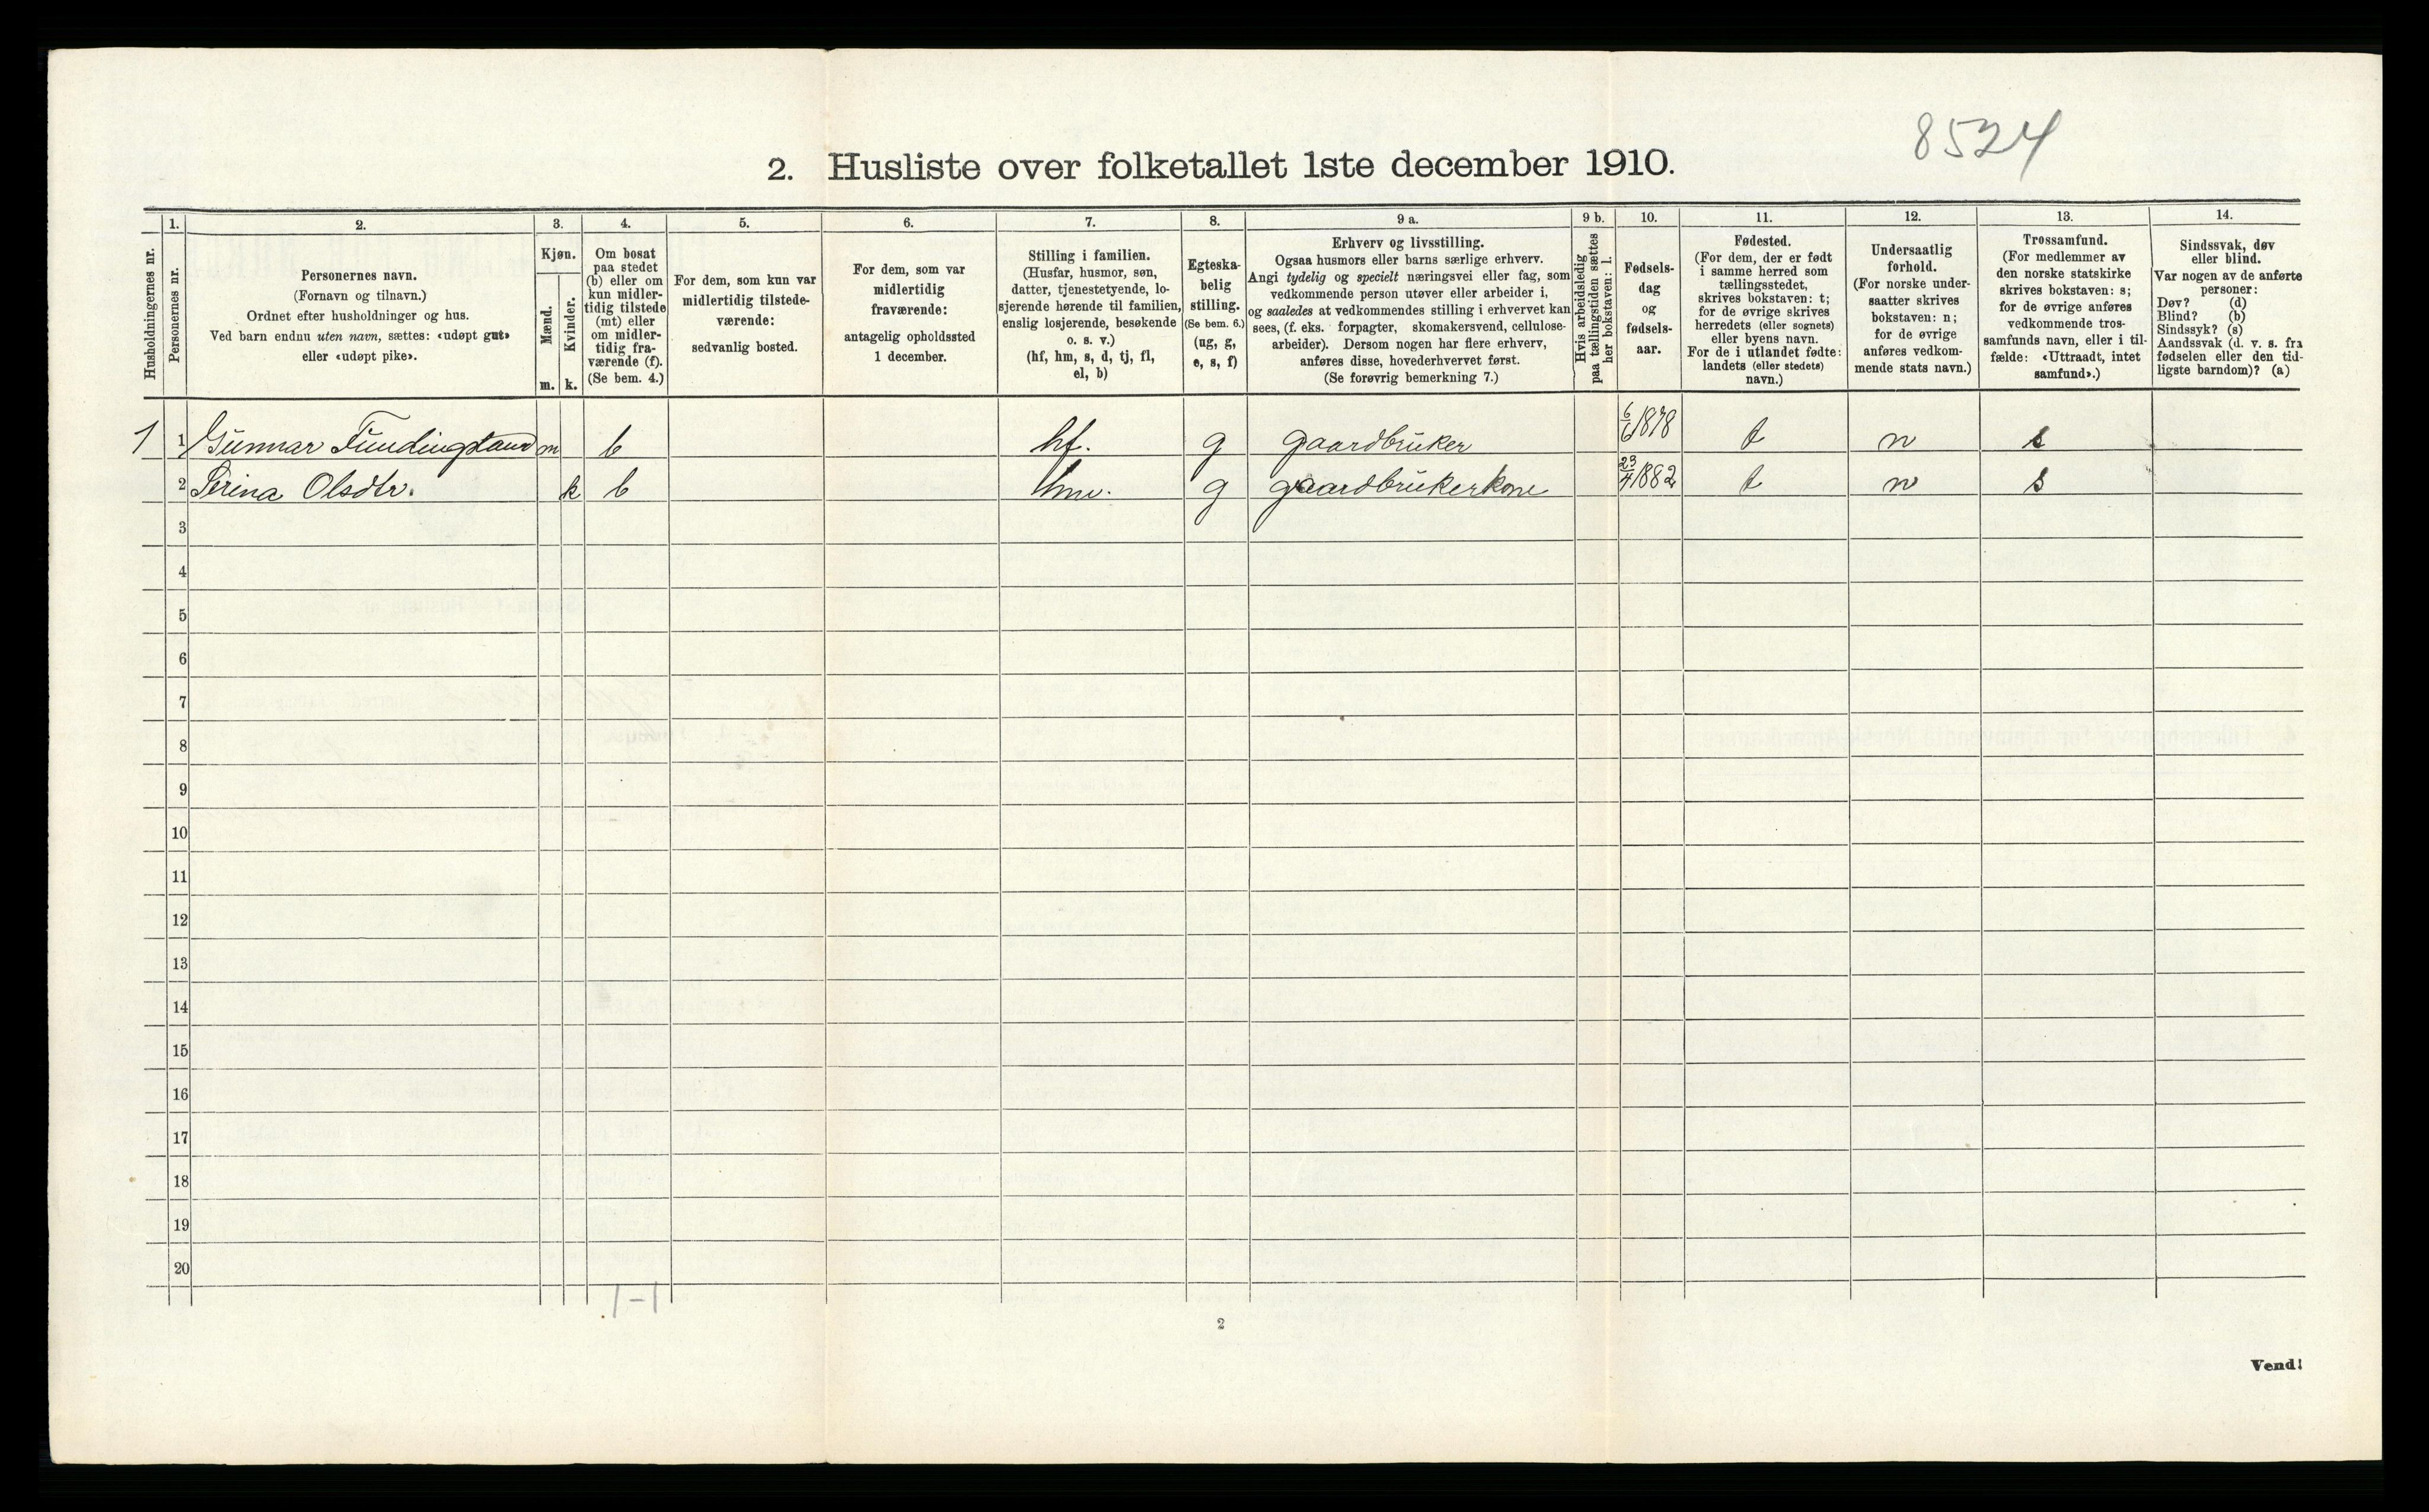 8524
2. Husliste over folketallet 1ste december 1910.
Husholdningernes nr.
1.
Personernes nr.
2.
Personernes navn.
(Fornavn og tilnavn.)
Ordnet efter husholdninger og hus.
Ved barn endnu uten navn, sættes: «udøpt gut»
eller «udøpt pike».
3.
Kjøn.
Mænd.
m.
Kvinder.
k.
4.
Om bosat
paa stedet
(b) eller om
kun midler-
tidig tilstede
(mt) eller
om midler-
tidig fra-
værende (f).
(Se bem. 4.)
5.
For dem, som kun var
midlertidig tilstede-
værende:
sedvanlig bosted.
6.
For dem, som var
midlertidig
fraværende:
antagelig opholdssted
1 december.
7.
Stilling i familien.
(Husfar, husmor, søn,
datter, tjenestetyende, lo-
sjerende hørende til familien,
enslig losjerende, besøkende
o. s. v.)
(hf, hm, s, d, tj, fl,
el, b)
8.
Egteska-
belig
stilling.
(Se bem. 6.)
(ug, g,
e, s, f)
9 a.
Erhverv og livsstilling.
Ogsaa husmors eller barns særlige erhverv.
Angi tydelig og specielt næringsvei eller fag, som
vedkommende person utøver eller arbeider i,
og saaledes at vedkommendes stilling i erhvervet kan
sees, (f. eks. forpagter, skomakersvend, cellulose-
arbeider). Dersom nogen har flere erhverv,
anføres disse, hovederhvervet først.
(Se forøvrig bemerkning 7.)
9 b.
Hvis arbeidsledig
paa tællingstiden sættes
her bokstaven: l.
10.
Fødsels-
dag
og
fødsels-
aar.
11.
Fødested.
(For dem, der er født
i samme herred som
tællingsstedet,
skrives bokstaven: t;
for de øvrige skrives
herredets (eller sognets)
eller byens navn.
For de i utlandet fødte:
landets (eller stedets)
navn.)
12.
Undersaatlig
forhold.
(For norske under-
saatter skrives
bokstaven: n;
for de øvrige
anføres vedkom-
mende stats navn.)
13.
Trossamfund.
(For medlemmer av
den norske statskirke
skrives bokstaven: s;
for de øvrige anføres
vedkommende tros-
samfunds navn, eller i til-
fælde: «Uttraadt, intet
samfund».)
14.
Sindssvak, døv
eller blind.
Var nogen av de anførte
personer:
Døv? (d)
Blind? (b)
Sindssyk? (s)
Aandssvak (d. v. s. fra
fødselen eller den tid-
ligste barndom)? (a)
1 1 Gunnar Fundingsland m b hf. g gaardbruker 6/6 1878 t n s
2 Serina Olsdtr. k b hm. g gaardbrukerkone 23/4 1882 t n s
3
4
5
6
7
8
9
10
11
12
13
14
15
16
17
18
19
20
1-1
2
Vend!